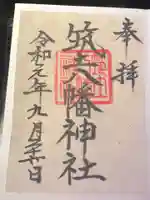 奉拝
筑土八幡神社
令和元年九月日